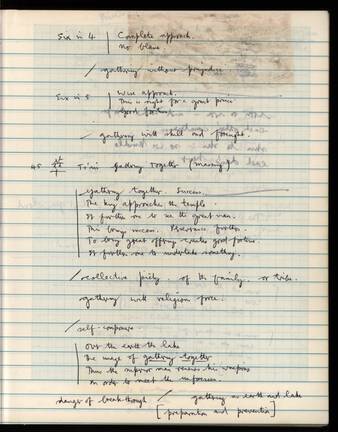 Six in 4 | Complete approach.
No blame.
/ gathering without prejudice
Six in 5 | Wise approach.
This is right for a great prince
Good fortune.
/ gathering with skill and foresight.
45 Ts'ui Gathering Together (massing)
Gathering together. Success.
The king approaches the temple.
It furthers one to see the great man.
This brings success. Perseverance furthers.
To bring great offerings creates good fortune.
It furthers one to undertake something.
/ collective piety. of the family. or tribe.
gathering with religious force.
/ self-composure.
Over the earth the lake
The image of gathering together
Thus the superior man renews his weapons
in order to meet the unforseen.
danger of breakthrough / gathering as earth and lake
[preparation and prevention]